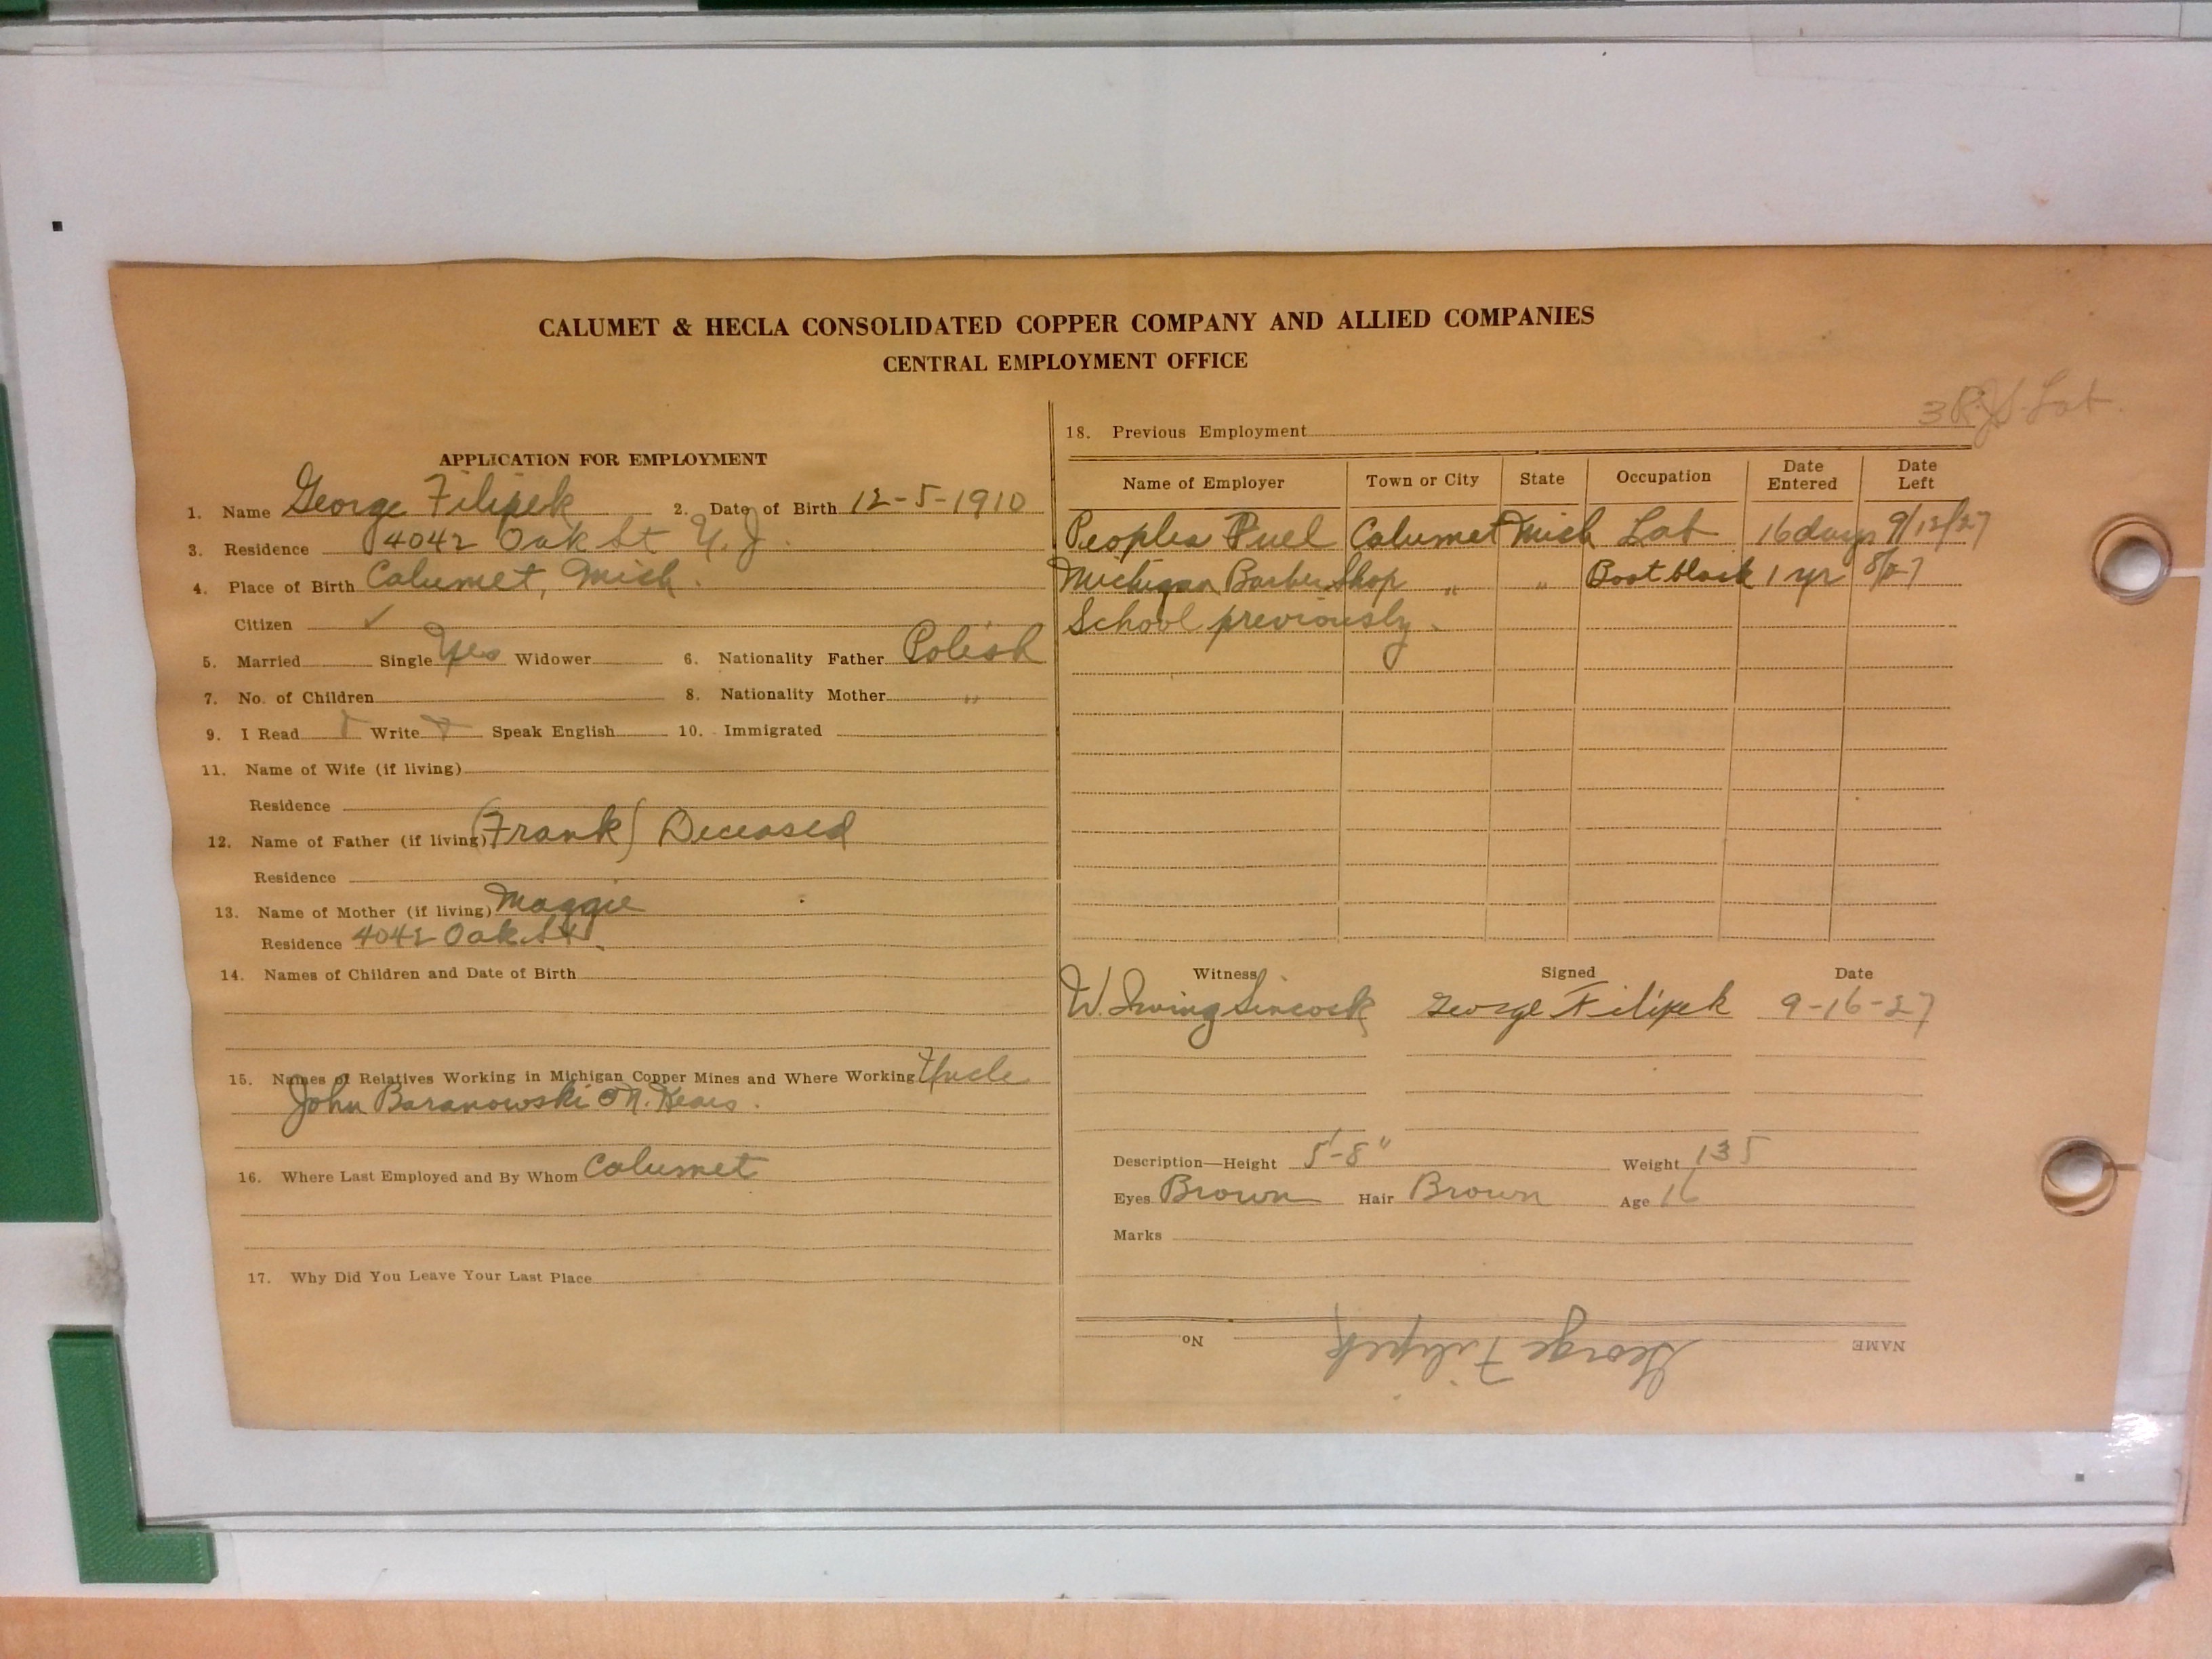 CALUMET & HECLA CONSOLIDATED COPPER COMPANY AND ALLIED COMPANIES
CENTRAL EMPLOYMENT OFFICE
APPLICATION FOR EMPLOYMENT
1. Name George Filipek 2. Date of Birth 12-5-1910
3. Residence 4042 Oak St Y.J.
4. Place of Birth Calumet, Mich.
Citizen ✓
5. Married Single Yes Widower 6. Nationality Father Polish
7. No. of Children 8. Nationality Mother "
9. I Read Write Speak English 10. Immigrated
11. Name of Wife (if living)
Residence
12. Name of Father (if living) (Frank) Deceased
Residence
13. Name of Mother (if living) Maggie
Residence 4042 Oak St.
14. Names of Children and Date of Birth
15. Names of Relatives Working in Michigan Copper Mines and Where Working Uncle
John Baranowski N. Kears.
16. Where Last Employed and By Whom Calumet
17. Why Did You Leave Your Last Place
3 Lab.
18. Previous Employment
Name of Employer Town or City State Occupation Date Entered Date Left
Peoples Fuel Calumet Mich Lab 16 days 9/12/27
Michigan Barber Shop " " Bootblack 1 yr 8/27
School previously.
Witness Signed Date
W. Irving Sincock George Filipek 9-16-27
Description—Height 5'-8" Weight 135
Eyes Brown Hair Brown Age 16
Marks
NAME George Filipek No